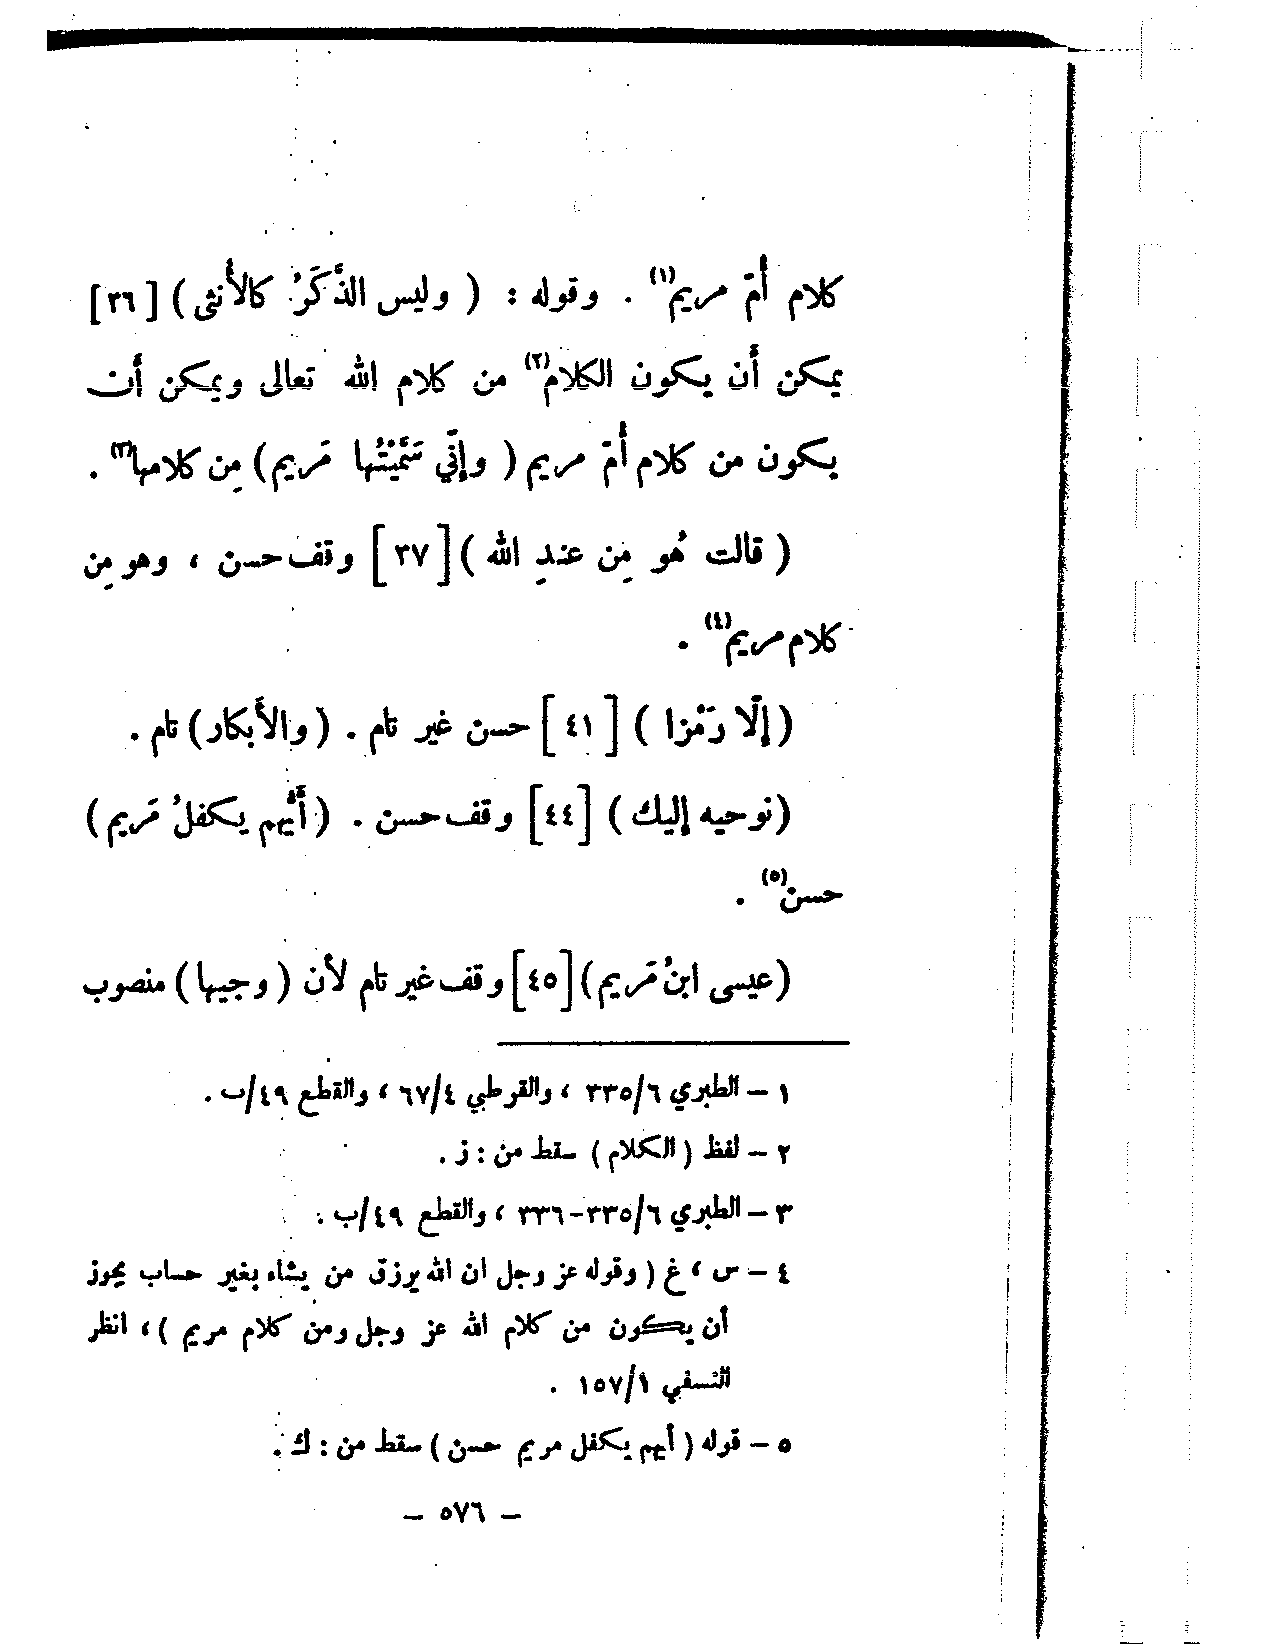 كلام أُمّ مريم(١) . وقوله : ( وليس الذَّكَرُ كالأُنثى ) [٣٦]
يمكن أن يكون الكلام(٢) من كلام الله تعالى ويمكن أن
يكون من كلام أُمّ مريم ( وإنّي سَمَّيْتُها مَريم ) مِن كلامها(٣) .
( قالت هُو مِن عندِ الله ) [٣٧] وقف حسن ، وهو مِن
كلام مريم(٤) .
( إلّا رَمْزا ) [٤١] حسن غير تام . ( والأَبكار ) تام .
( نوحيه إليك ) [٤٤] وقف حسن . ( أَيُّهم يكفلُ مَريم )
حسن(٥) .
( عيسى ابنُ مَريم ) [٤٥] وقف غير تام لأن ( وجيها ) منصوب
١ – الطبري ٦/٣٣٥ ، والقرطبي ٤/٦٧ ، والقطع ٤٩/ب .
٢ – لفظ ( الكلام ) سقط من : ز .
٣ – الطبري ٦/٣٣٥–٣٣٦ ، والقطع ٤٩/ب .
٤ – س ، غ ( وقوله عز وجل ان الله يرزق من يشاء بغير حساب يجوز
أن يكون من كلام الله عز وجل ومن كلام مريم ) ، انظر
النسفي ١/١٥٧ .
٥ – قوله ( أيهم يكفل مريم حسن ) سقط من : ك .
– ٥٧٦ –